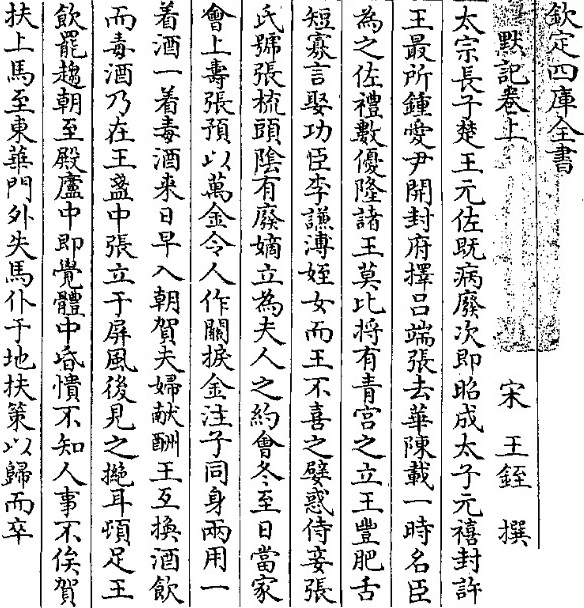 欽定四庫全書
默記卷上
宋 王銍 撰
太宗長子楚王元佐既病廢次即昭成太子元禧封許
王最所鍾愛尹開封府擇呂端張去華陳載一時名臣
為之佐禮數優隆諸王莫比將有青宮之立王豐肥舌
短寡言娶功臣李謙溥姪女而王不喜之嬖惑侍妾張
氏號張梳頭陰有廢嫡立為夫人之約會冬至日當家
會上壽張預以萬金令人作關捩金注子同身兩用一
着酒一着毒酒来日早入朝賀夫婦献酬王互換酒飲
而毒酒乃在王盞中張立于屏風後見之撧耳頓足王
飲罷趨朝至殿廬中即覺體中昏憒不知人事不俟賀
扶上馬至東華門外失馬仆于地扶策以歸而卒